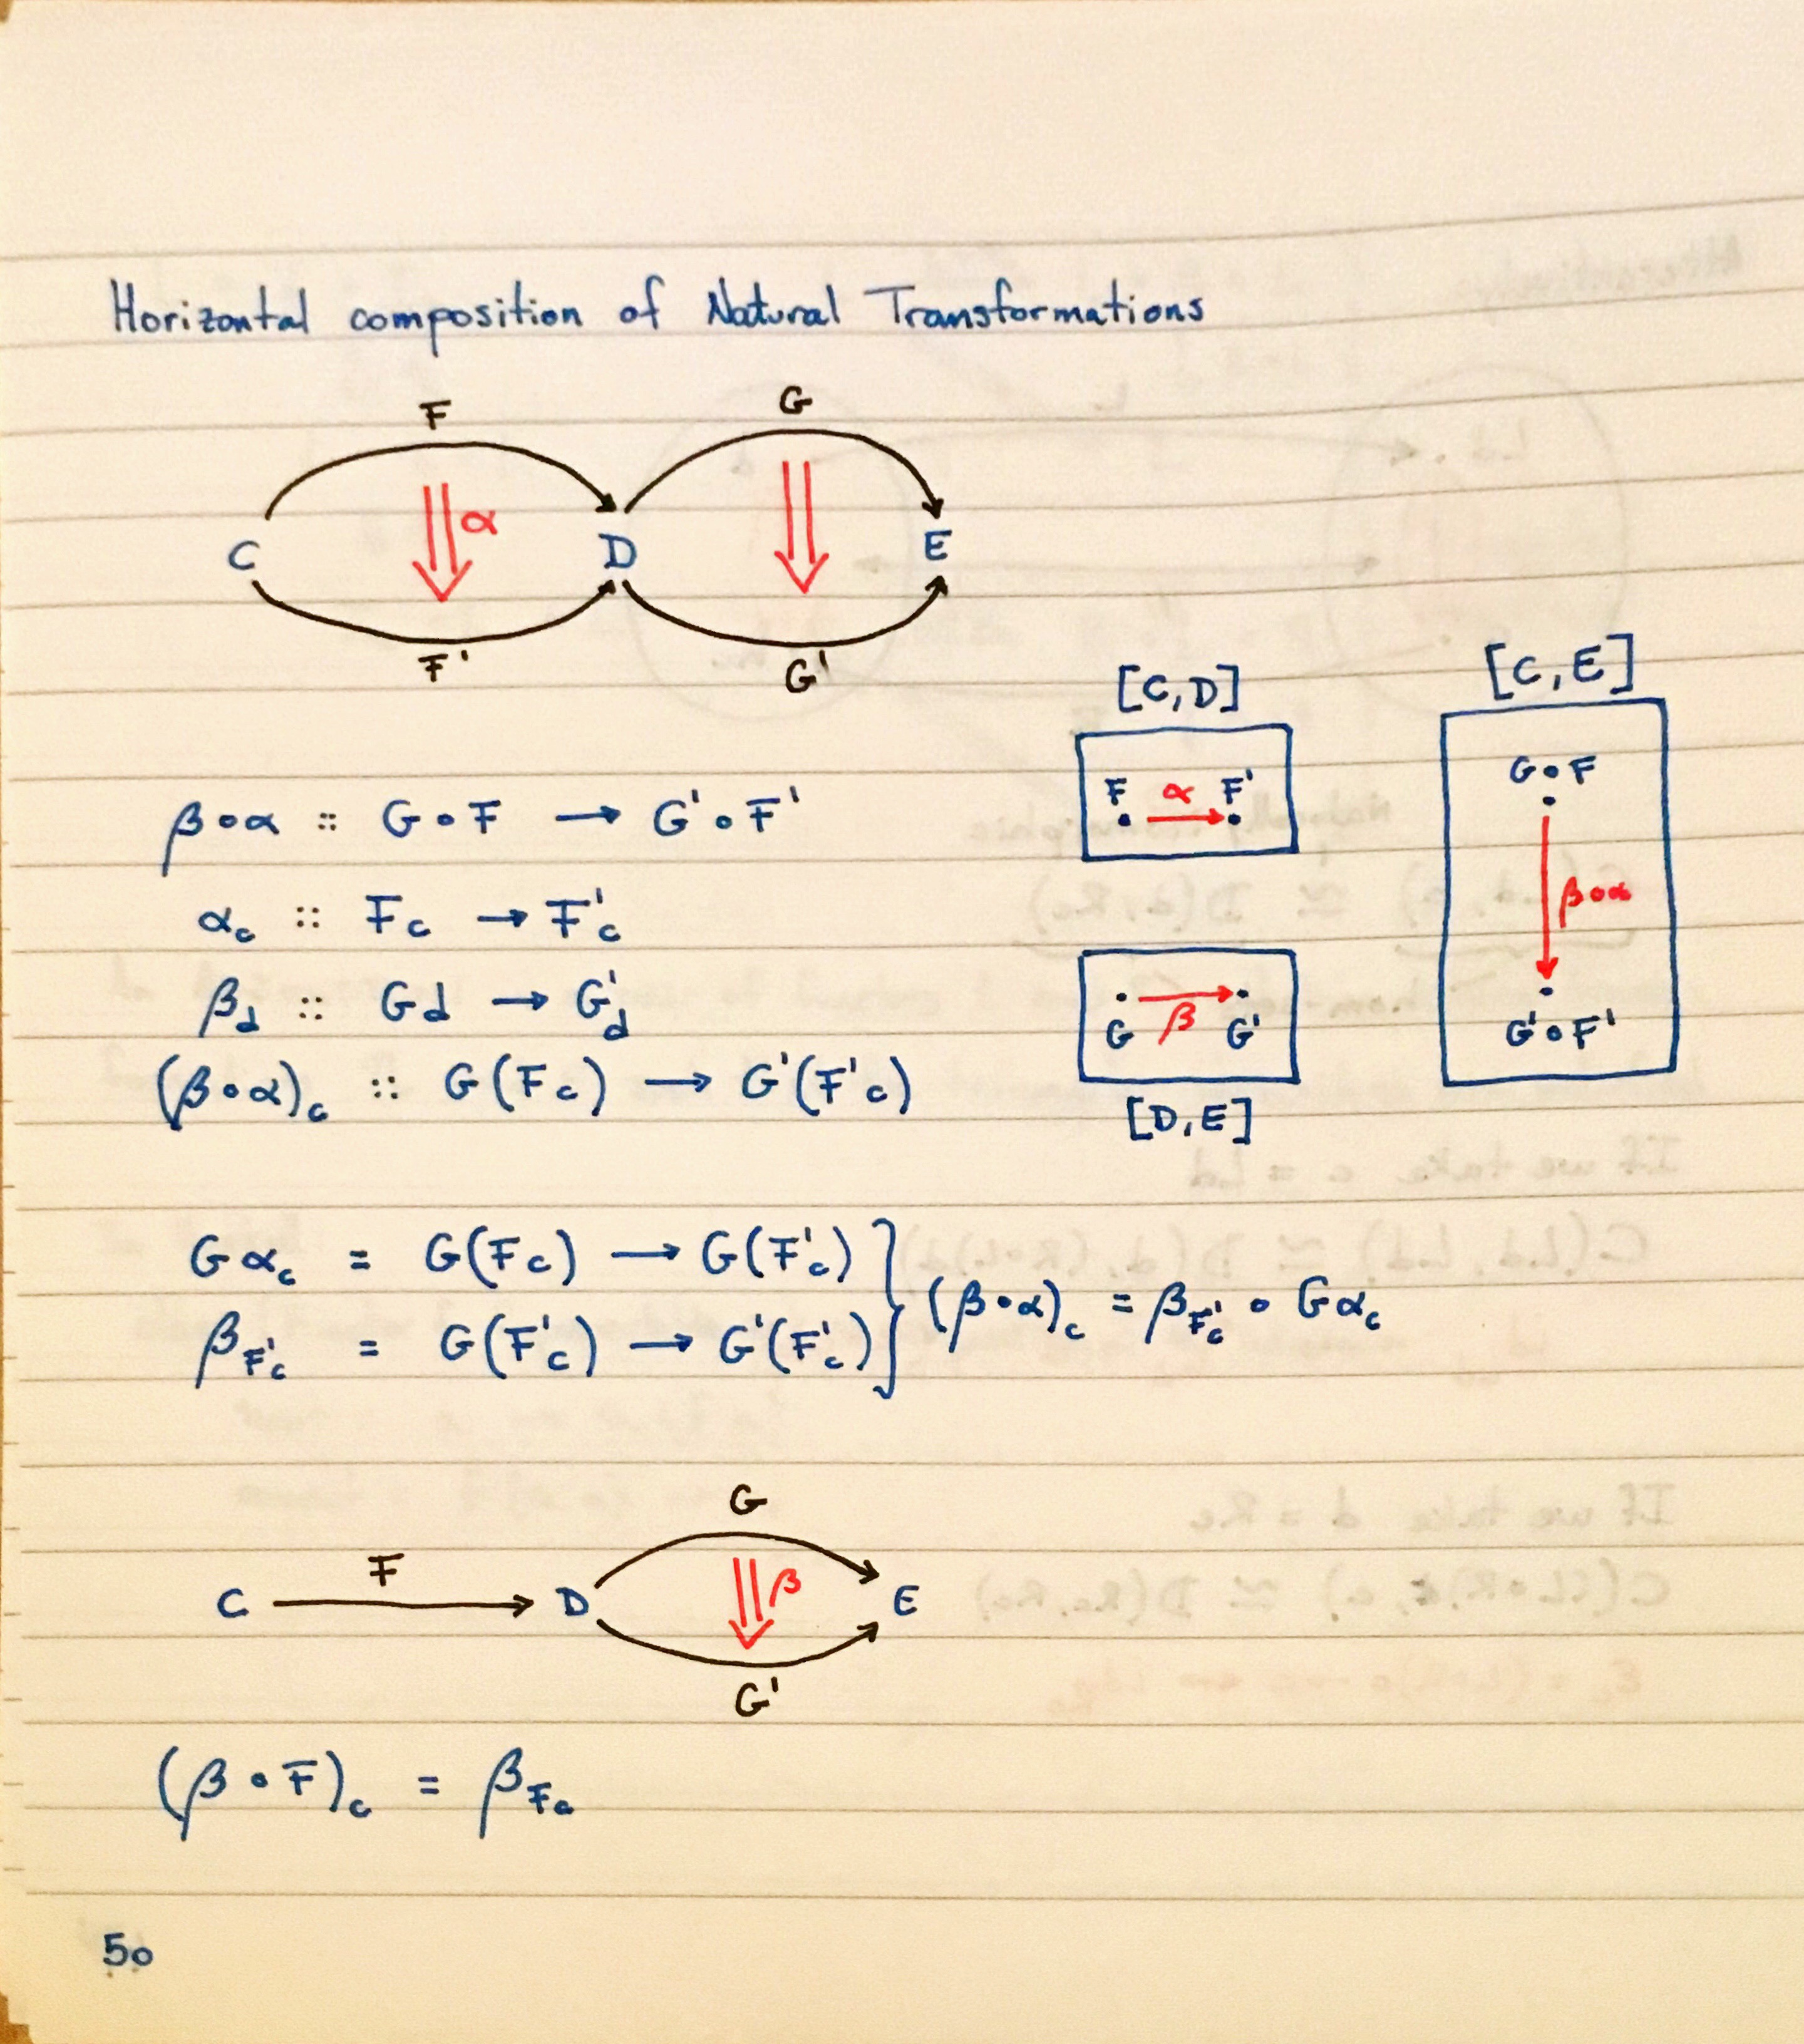 Horizontal composition of Natural Transformations
F G
α
C D E
F' G'
[C,D] [C,E]
β∘α :: G∘F → G'∘F'
F α F'
G∘F
β∘α
G'∘F'
α_c :: F_c → F'_c
β_d :: Gd → G'_d
G β G'
(β∘α)_c :: G(F_c) → G'(F'_c)
[D,E]
Gα_c = G(F_c) → G(F'_c)
β_{F'_c} = G(F'_c) → G'(F'_c)
} (β∘α)_c = β_{F'_c} ∘ Gα_c
G
F
C D β E
G'
(β∘F)_c = β_{F_c}
50